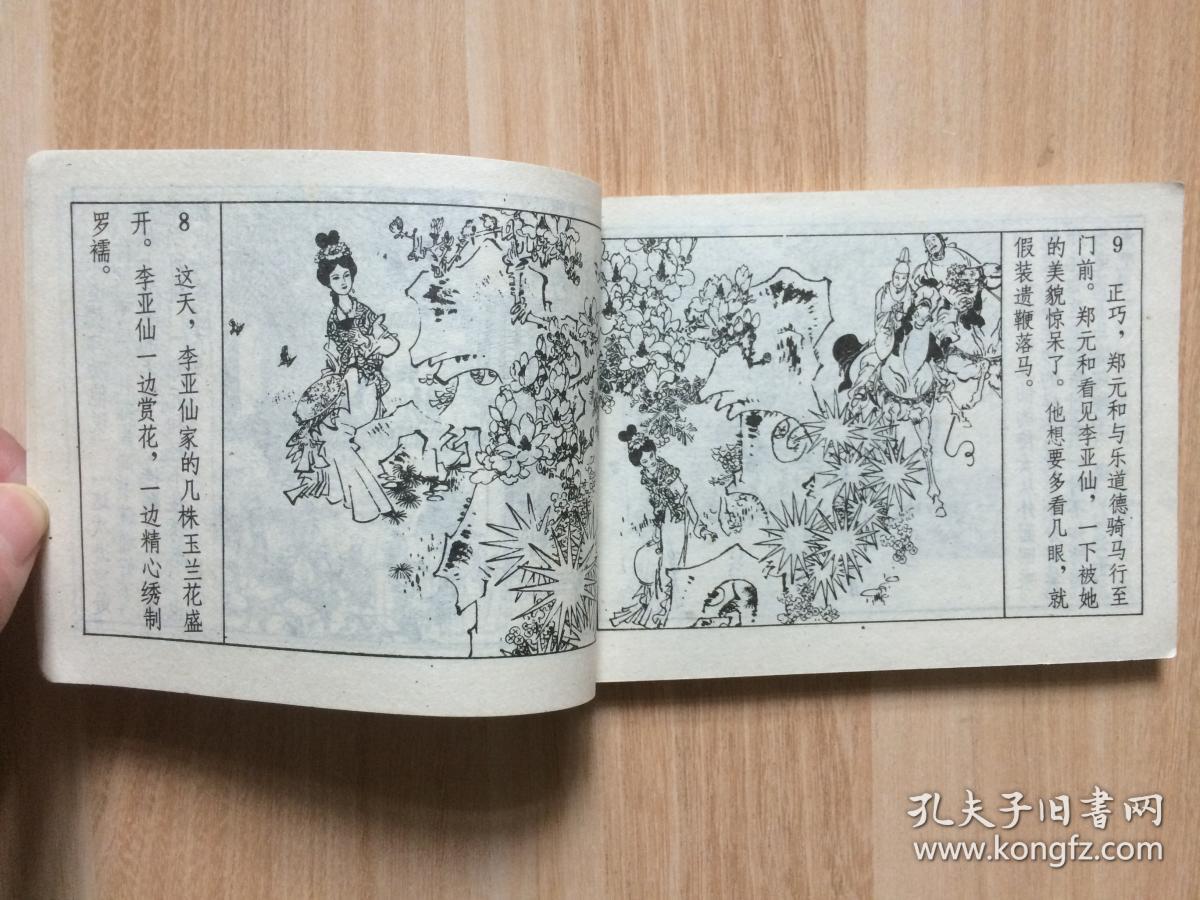 8 这天，李亚仙家的几株玉兰花盛
开。李亚仙一边赏花，一边精心绣制
罗襦。
9 正巧，郑元和与乐道德骑马行至
门前。郑元和看见李亚仙，一下被她
的美貌惊呆了。他想要多看几眼，就
假装遗鞭落马。
孔夫子旧书网
www.kongfz.com